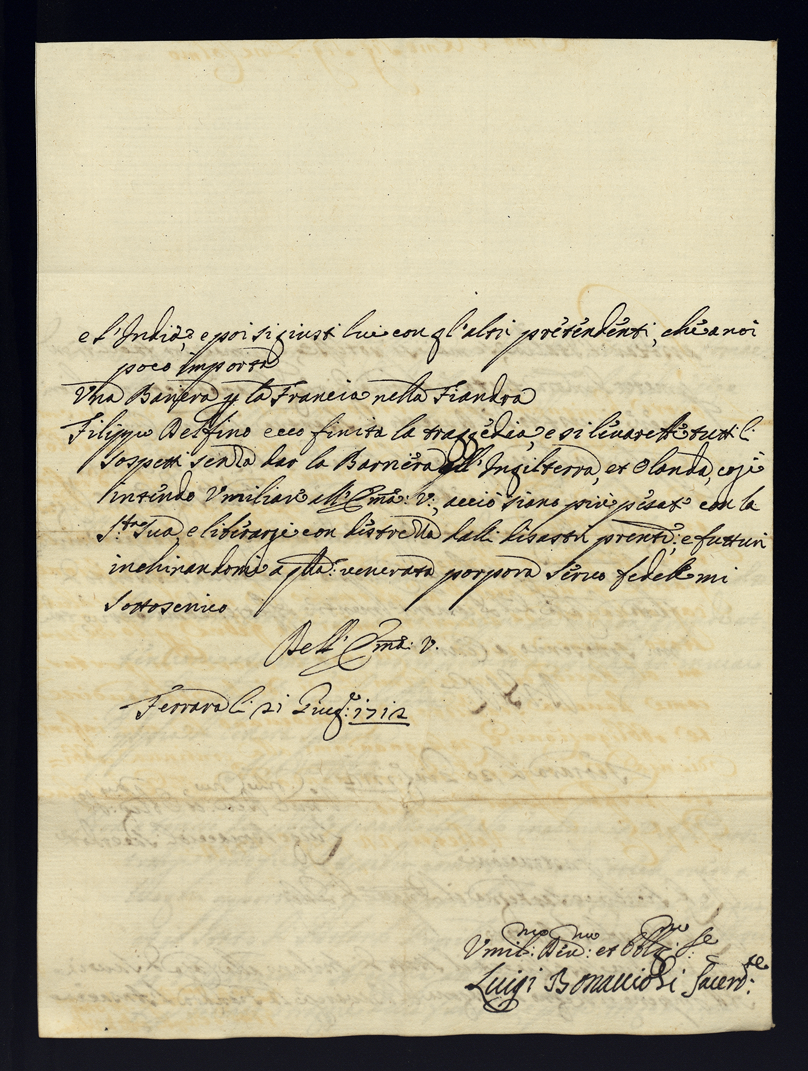 e l'Indie, e poi si giusti lui con gl'altri pretendenti, che a noi
poco importa
Una Barriera p la Francia nella Fiandra
Filippo Delfino ecco finita la traggedia, e si levarette tutti li
sospetti senza dar la Barriera all'Ingilterra, et Olanda, cosi
intendo Umiliare all'Emã: V., acciò siano più pesati con la
Sua, e liberarsi con distrezza dalli disastri prenti: e futturi
inchinandomi a qlla: venerata porpora servo fedeliss mi
sottoscrivo
Dell'Emã: V.
Ferrara li 21 Giug: 1712
Umilmo: Devmo: et Obblmo: Se
Luigi Bonaccioli Sacerdte: